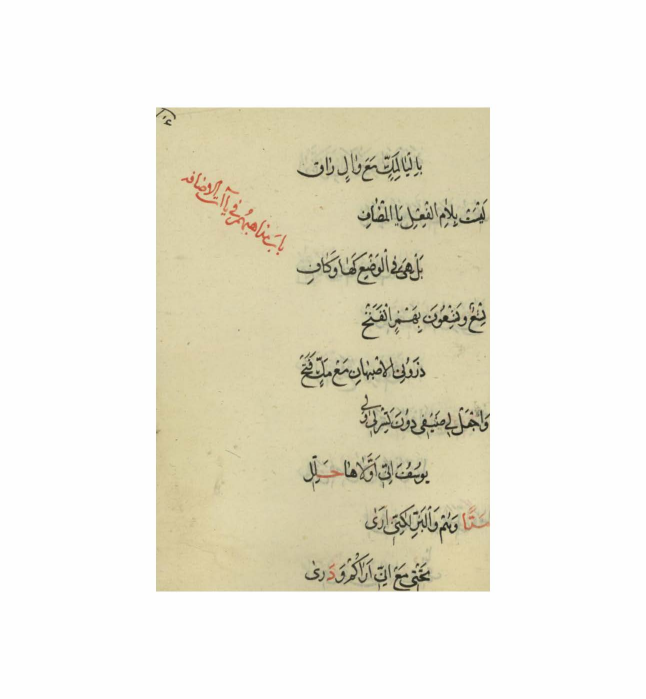 باب مذاهبهم في ياآت الاضافة
بالياء لمكٍّ مع وال راق
ليست بلام الفعل يا المضاف
بل هي في الوضع كها وكاف
تسع وتسعون بهمز انفتح
ذرون الاصبهان مع مكٍّ فتح
واجعل لي ضيفي دون يسر لي ولي
يوسف انّي اوّلاها حلّل
وهم والبزّ لكنّي ارى
تحتي مع انّي اراكم ودرى